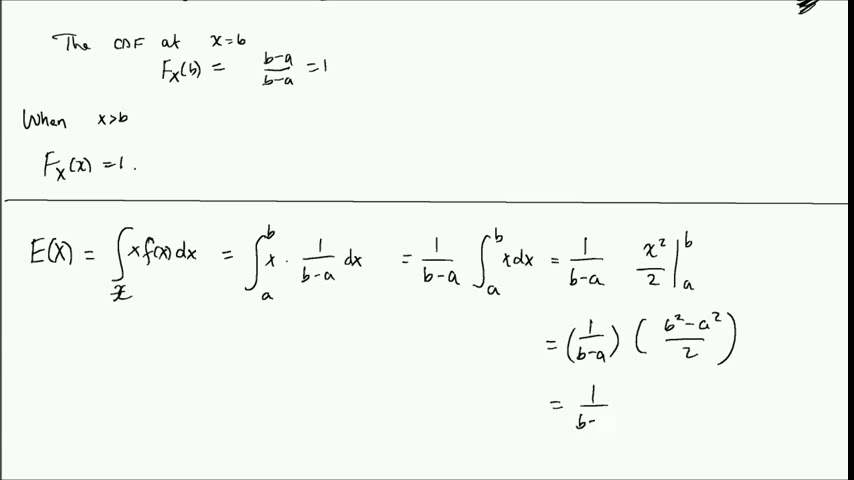 The CDF at x=b
F_X(b) = \frac{b-a}{b-a} = 1
When x>b
F_X(x) = 1.
E(X) = \int_{x} x f(x) dx = \int_a^b x \cdot \frac{1}{b-a} dx = \frac{1}{b-a} \int_a^b x dx = \frac{1}{b-a} \frac{x^2}{2} |_a^b
= (\frac{1}{b-a}) (\frac{b^2-a^2}{2})
= \frac{1}{b-}